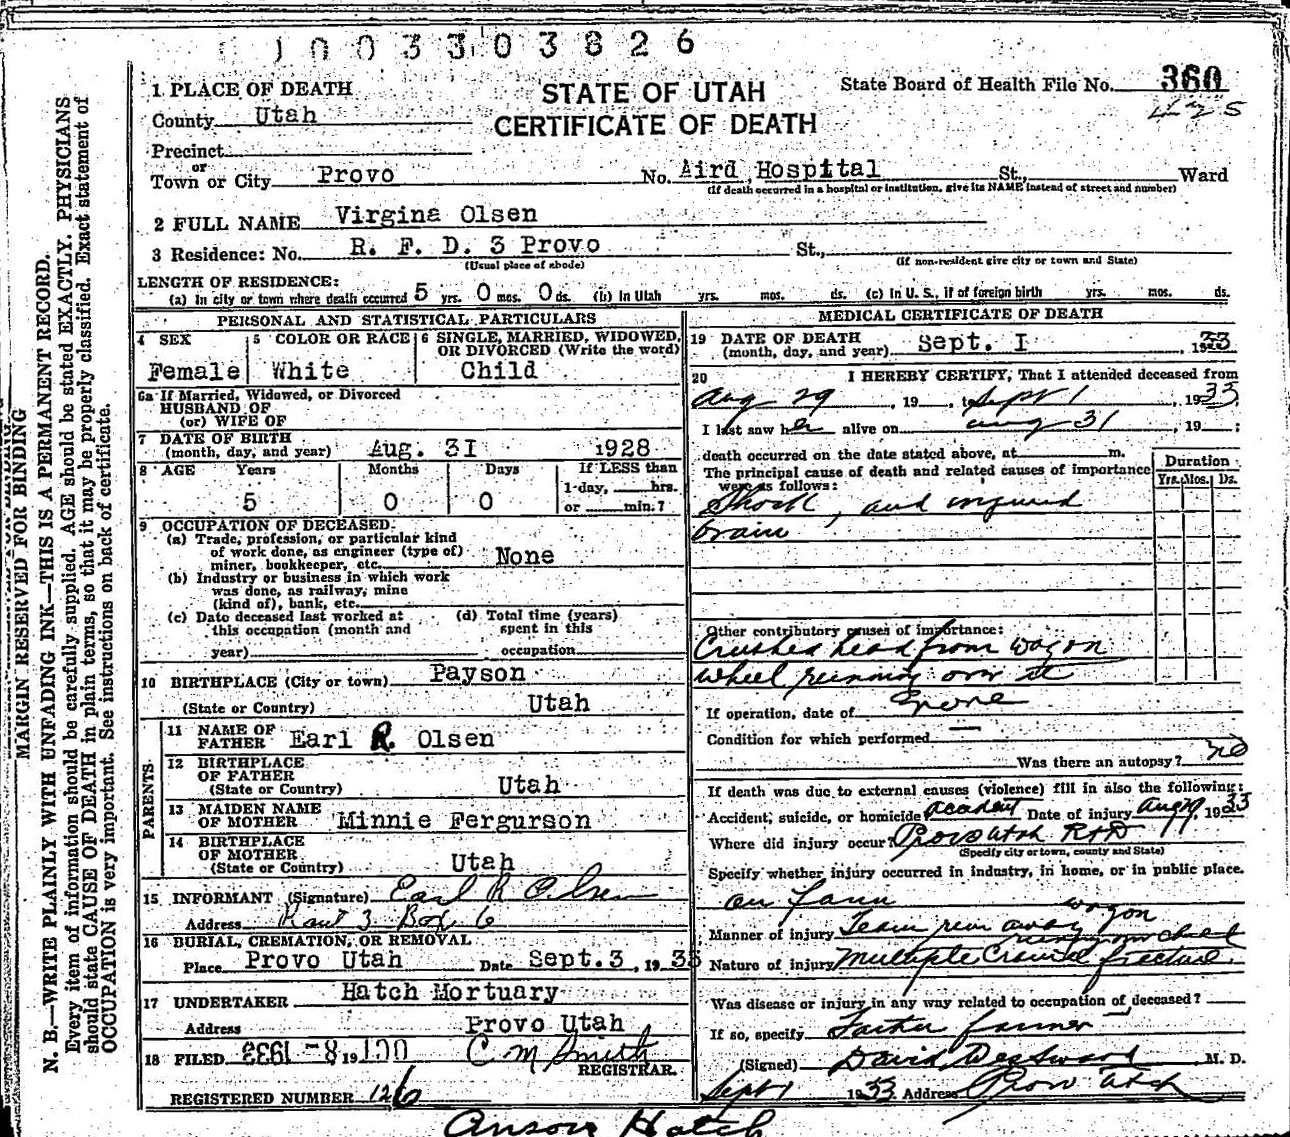 1003303826
STATE OF UTAH
CERTIFICATE OF DEATH
State Board of Health File No. 360
MARGIN RESERVED FOR BINDING
N. B.—WRITE PLAINLY WITH UNFADING INK—THIS IS A PERMANENT RECORD.
Every item of information should be carefully supplied. AGE should be stated EXACTLY. PHYSICIANS
should state CAUSE OF DEATH in plain terms, so that it may be properly classified. Exact statement of
OCCUPATION is very important. See instructions on back of certificate.
1 PLACE OF DEATH
County Utah
Precinct
or
Town or City Provo No. Aird Hospital St., Ward
(If death occurred in a hospital or institution, give its NAME instead of street and number)
2 FULL NAME Virgina Olsen
3 Residence: No. R. F. D. 3 Provo St.,
(Usual place of abode) (If non-resident give city or town and State)
LENGTH OF RESIDENCE:
(a) In city or town where death occurred 5 yrs. 0 mos. 0 ds. (b) In Utah yrs. mos. ds. (c) In U. S., if of foreign birth yrs. mos. ds.
PERSONAL AND STATISTICAL PARTICULARS
4 SEX 5 COLOR OR RACE 6 SINGLE, MARRIED, WIDOWED,
OR DIVORCED (Write the word)
Female White Child
6a If Married, Widowed, or Divorced
HUSBAND OF
(or) WIFE OF
7 DATE OF BIRTH
(month, day, and year) Aug. 31 1928
8 AGE Years Months Days If LESS than
1-day, hrs.
5 0 0 or min.?
9 OCCUPATION OF DECEASED:
(a) Trade, profession, or particular kind
of work done, as engineer (type of)
miner, bookkeeper, etc. None
(b) Industry or business in which work
was done, as railway, mine
(kind of), bank, etc.
(c) Date deceased last worked at (d) Total time (years)
this occupation (month and spent in this
year) occupation
10 BIRTHPLACE (City or town) Payson
(State or Country) Utah
PARENTS
11 NAME OF
FATHER Earl R. Olsen
12 BIRTHPLACE
OF FATHER
(State or Country) Utah
13 MAIDEN NAME
OF MOTHER Minnie Fergurson
14 BIRTHPLACE
OF MOTHER
(State or Country) Utah
15 INFORMANT (Signature) Earl R Olsen
Address Raut 3 Box 6
16 BURIAL, CREMATION, OR REMOVAL
Place Provo Utah Date Sept. 3, 1933
17 UNDERTAKER Hatch Mortuary
Address Provo Utah
18 FILED OCT -8 1933 19 C. M. Smith
REGISTRAR.
REGISTERED NUMBER 126
MEDICAL CERTIFICATE OF DEATH
19 DATE OF DEATH
(month, day, and year) Sept. I, 1933
20 I HEREBY CERTIFY, That I attended deceased from
Aug 29, 19 , to Sept 1, 1933.
I last saw her alive on Aug 31, 19 ;
death occurred on the date stated above, at m.
The principal cause of death and related causes of importance
were as follows:
Duration
Yrs. Mos. Ds.
Shock, and injured
brain
Other contributory causes of importance:
Crushed head from wagon
wheel running over it
If operation, date of None
Condition for which performed
Was there an autopsy? no
If death was due to external causes (violence) fill in also the following:
Accident, suicide, or homicide accident Date of injury Aug 29, 1933
Where did injury occur? Provo Utah RFD
(Specify city or town, county and State)
Specify whether injury occurred in industry, in home, or in public place.
on farm
wagon
Manner of injury Team run away running over child
Nature of injury Multiple Cranial fracture
Was disease or injury in any way related to occupation of deceased?
If so, specify Father farmer
(Signed) David Westwood M. D.
Sept 1 1933 Address Provo Utah
Anson Hatch